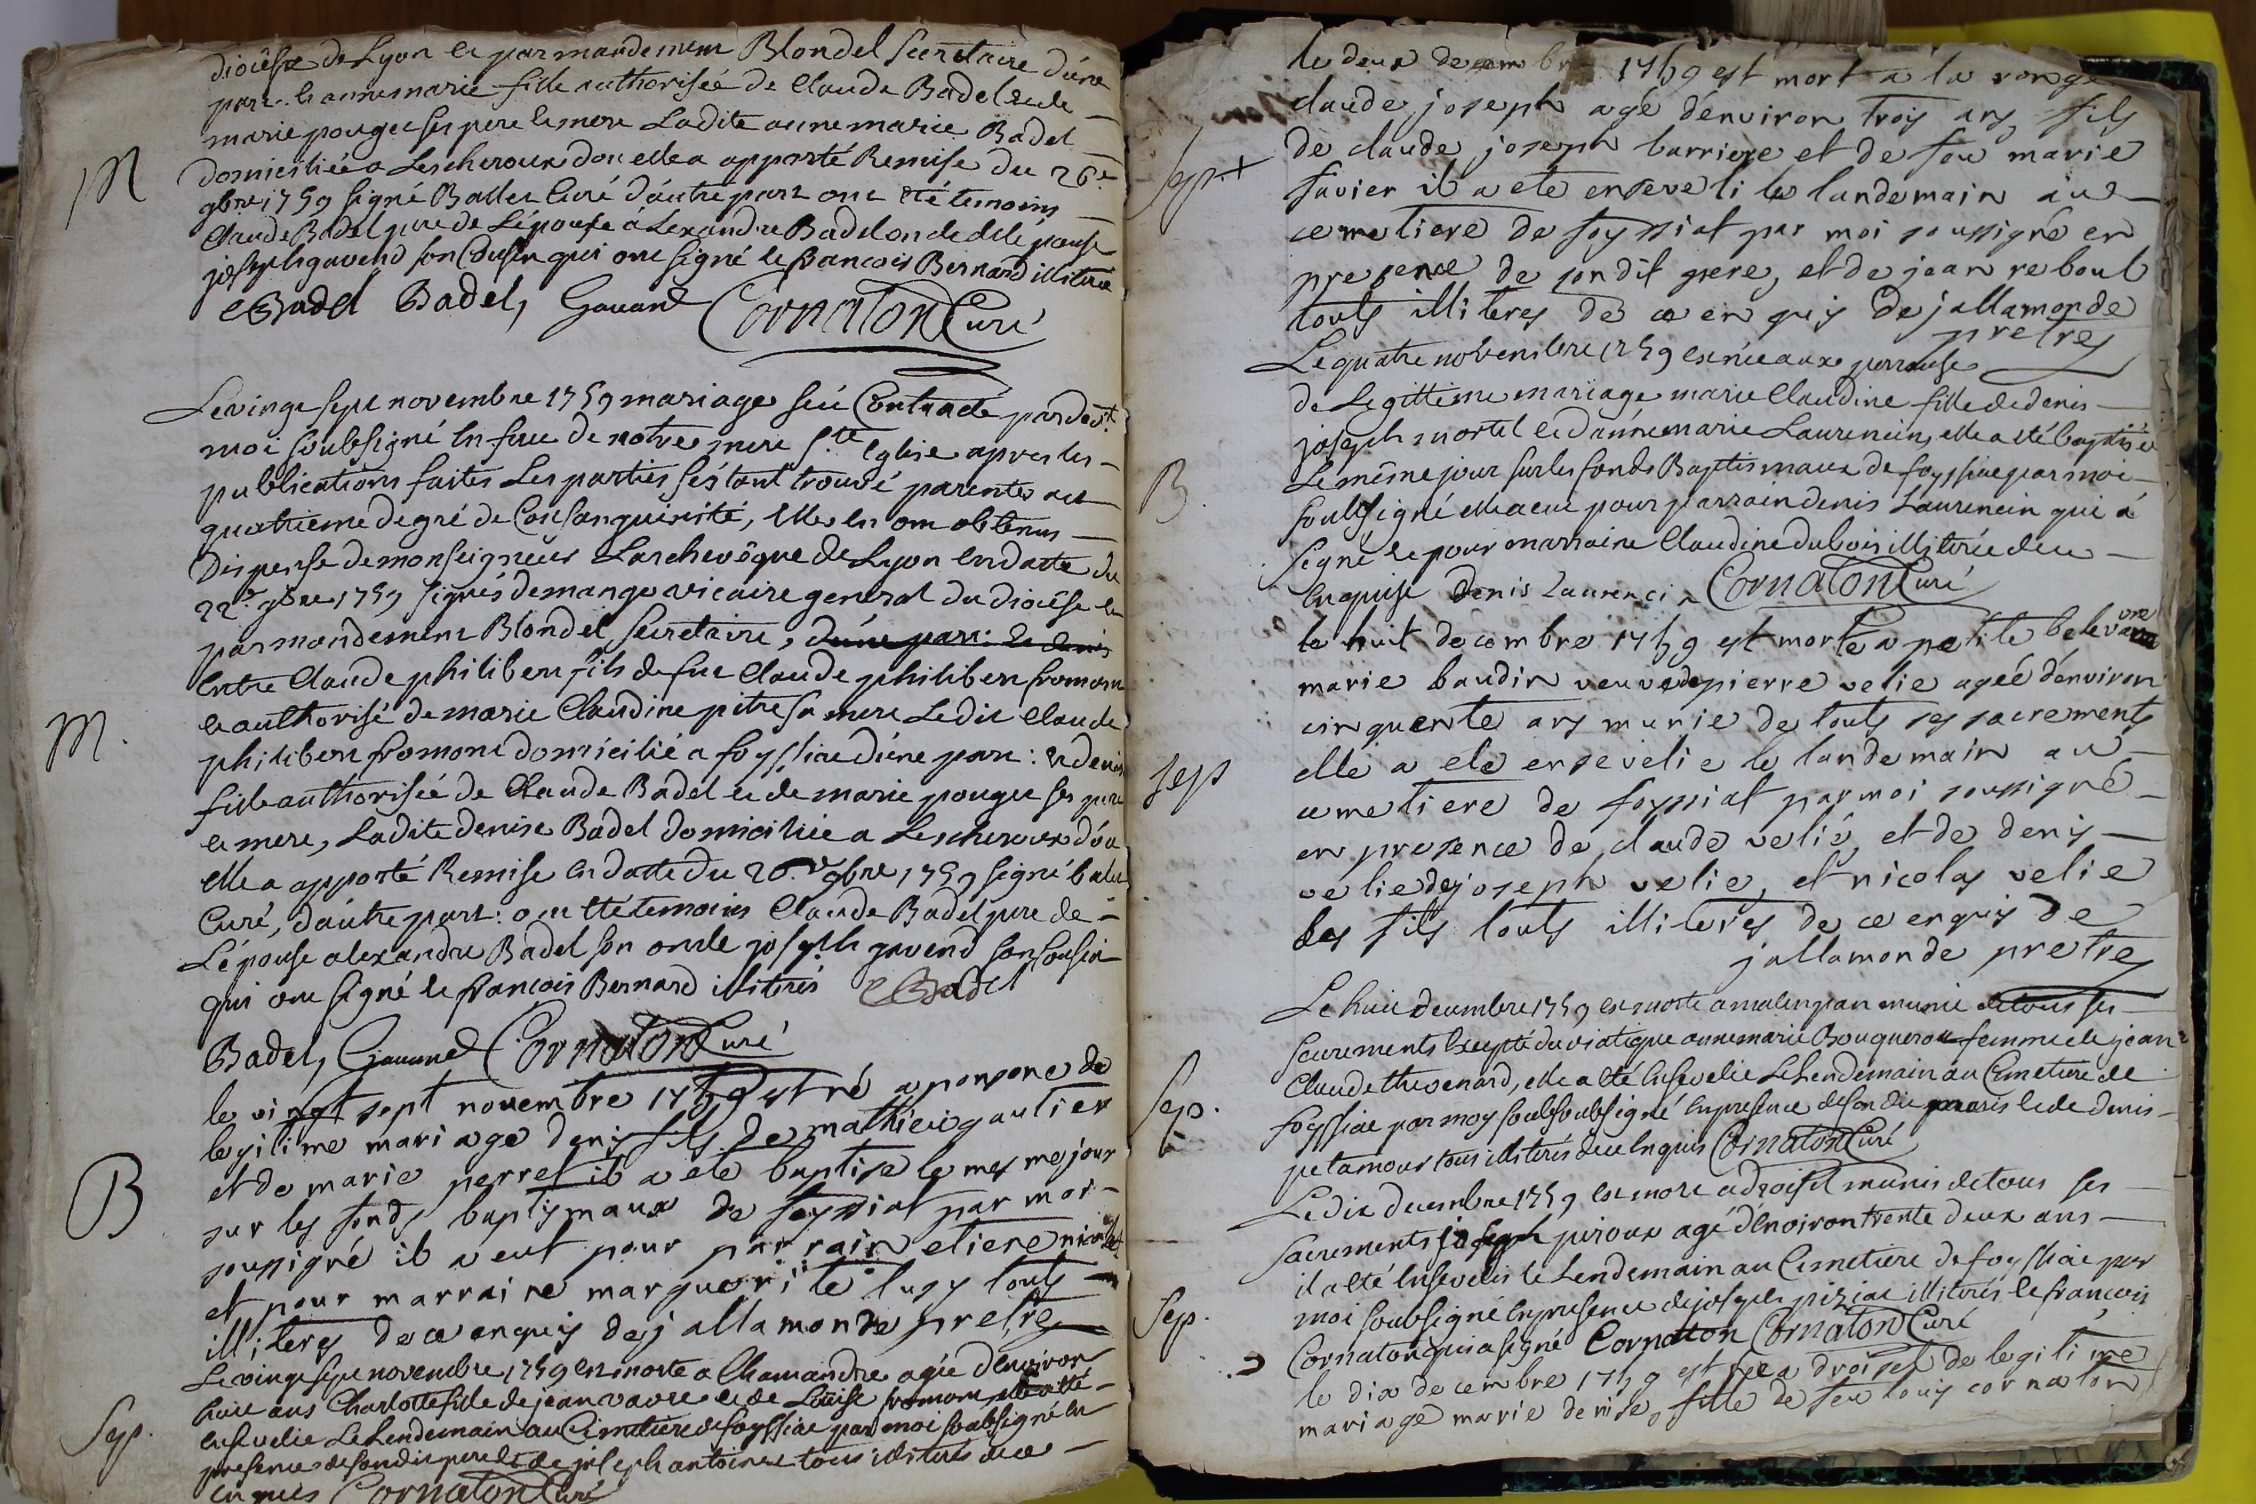 diocèse de Lyon et par mandement Blondel Secretaire d'une
part. et anne marie fille authorisée de Claude Badel et de
marie pouget ses pere et mere Ladite anne marie Badel
M
domiciliée a Lescheroux dou elle a apporté Remise du 26.e
9bre 1759 signé Ballet Curé d'autre part ont été temoins
Claude Badel pere de Lépouse aLexandre Badel oncle de lépouse
joseph gavend son Cousin qui ont signé et francois Bernard illiteré
CBadel Badel, Gauand Cornaton Curé
Le vingt sept novembre 1759 mariage feu Contracté pardev.t
moi soubsigné en face de notre mere S.te Eglise apres les
publications faites Les parties s'éstant trouvé parentes au
quatrieme degré de Consanguinité, Elles en ont obtenus
Dispense de monseigneur Larchevêque de Lyon en datte du
22.e 9bre 1759 signés demange vicaire general du diocèse et
par mandement Blondel Secretaire, d'une part: et denise
Entre Claude philibert fils de feu Claude philibert fromont
et authorisé de marie Claudine pitre sa mere Ledit Claude
M.
philibert fromont domicilié a foyssiat d'une part: et denise
fille authorisée de Claude Badel et de marie pouget ses pere
et mere, Ladite denise Badel domiciliée a Lescheroux d'ou
elle a apporté Remise en datte du 26.e 9bre 1759 signé balet
Curé, d'autre part: ont été temoins Claude Badel pere de
Lépouse alexandre Badel son oncle joseph gavend son Cousin
qui ont signé et francois Bernard illiterés CBadel
Badel, Gauand Cornaton Curé
le vingt sept novembre 1759 est né a ponsone de
legitime mariage denis fils de mathieu gautier
et de marie perret il a eté baptise le mesme jour
B
sur les fonds baptismaux de foyssiat par moi
soussigné il a eut pour parrain etiene nicolet
et pour marraine marguerite lugy touts
illiteres de ce enquis dej allamonde pretre
Le vingt sept novembre 1759 est morte a Chamandre agée d'environ
huit ans Charlotte fille de jean vavre et de Louise fromont elle a été
Sep.
ensevelie Le Lendemain au Cimetiere de foyssiat par moi soubsigné en
presence de son dit pere et de joseph antoine tous illiterés de ce
enquis Cornaton Curé
le deux decembre 1759 est mort a la ronge
claude joseph agé d'environ trois ans fils
Sep.+
de claude joseph barriere et de feu marie
favier il a ete enseveli le landemain au
cemetiere de foyssiat par moi soussigné en
presence de son dit pere, et de jean reboul
touts illiteres de ce en quis de jallamonde
pretre
Le quatre novembre 1759 est née aux perrouses
de Legittime mariage marie Claudine fille de denis
joseph mortel et d'anne marie Laurencin, elle a été baptisée
B.
Le même jour sur les fonds Baptismaux de foyssiat par moi
soubsigné elle a eu pour parrain denis Laurencin qui a
signé et pour marraine Claudine dubois illiterée de ce
enquise denis Laurenci n Cornaton Curé
le huit decembre 1759 est morte a petite belevavre
marie baudin veuve de pierre velie ageé d'environ
cinquente ans munie de touts ses sacrements
Sep
elle a ete ensevelie le landemain au
cemetiere de foyssiat par moi soussigné
en presence de claude velié, et de denis
velie de joseph velie, et nicolas velie
ses fils touts illiteres de ce enquis de
jallamonde pretre
Le huit decembre 1759 est morte a malenpan munie de tous ses
Sacrements Excepté du viatique anne marie Bouquerot femme de jean
Claude thevenard, elle a été Ensevelie Le Lendemain au Cimetiere de
Sep.
foyssiat par moy soubsoubsigné en presence de son dit maris et de denis
petamour tous illiterés de ce enquis Cornaton Curé
Le dix decembre 1759 est mort a droisel munis de tous ses
Sacrements joseph piroux agé d'environ trente deux ans
il a été Enseveli le Lendemain au Cimetiere de foyssiat par
moi soubsigné en presence de joseph piziat illiterés et francois
Sep.
Cornaton qui a signé Cornaton Cornaton Curé
le dix decembre 1759 est née a droisel de legitime
mariage marie denise, fille de feu louis cornaton